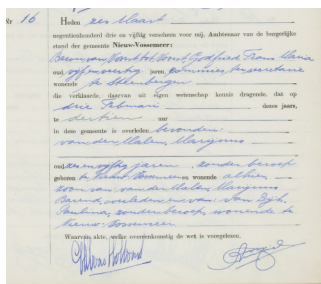 Nr 16
Heden zes Maart
negentienhonderd drie en vijftig verscheen voor mij, Ambtenaar van de burgerlijke
stand der gemeente Nieuw-Vossemeer:
Godfried Frans Maria
oud vijfenveertig jaren,
wonende te Steenbergen
die verklaarde, daarvan uit eigen wetenschap kennis dragende, dat op
drie Februari dezes jaars,
te dertien uur
in deze gemeente is overleden bevonden:
van der Male, Marijnus
oud zes en vijftig jaren, zonder beroep
geboren te Nieuw-Vossemeer en wonende alhier
zoon van: van der Male, Marijnus
Barend, overleden en van:
Paulina, zonder beroep, wonende te
Nieuw-Vossemeer
Waarvan akte, welke overeenkomstig de wet is voorgelezen.